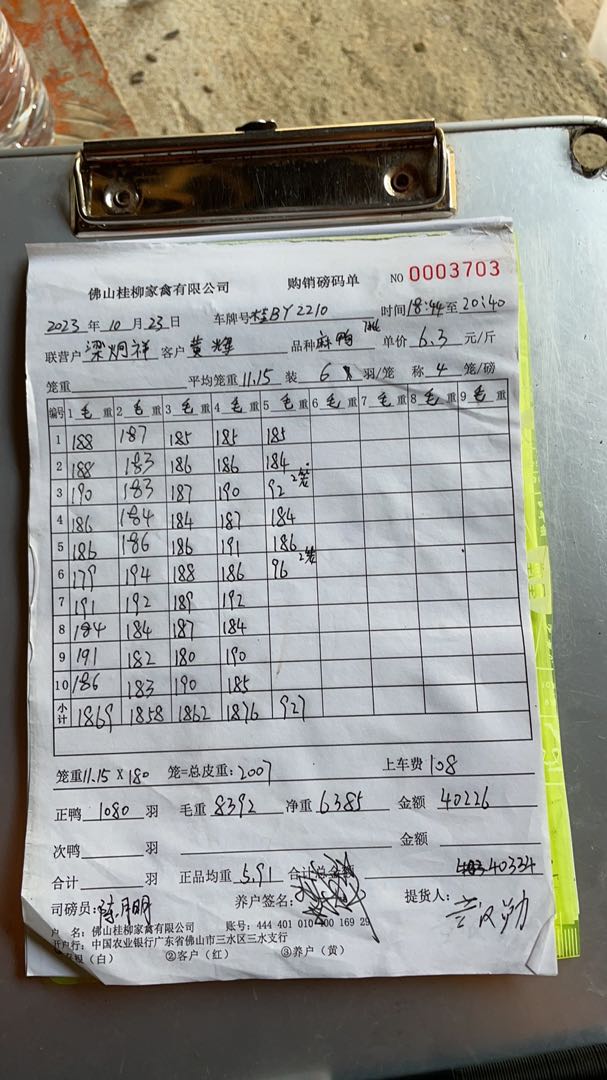 佛山桂柳家禽有限公司 购销磅码单 NO 0003703
2023 年 10 月 23 日 车牌号 桂BY2210 时间 18:44 至 20:40
联营户 梁炯祥 客户 黄辉 品种 麻鸭 单价 6.3 元/斤
笼重 平均笼重 11.15 装 6 羽/笼 称 4 笼/磅
编号 1 毛 重 2 毛 重 3 毛 重 4 毛 重 5 毛 重 6 毛 重 7 毛 重 8 毛 重 9 毛 重
1 188 187 185 185 185
2 188 183 186 186 184
3 190 183 187 190 92 2笼
4 186 184 184 187 184
5 186 186 186 191 186
6 179 194 188 186 96 2笼
7 191 192 189 192
8 184 184 187 184
9 191 182 180 190
10 186 183 190 185
小计 1869 1858 1862 1876 927
笼重 11.15 X 180 笼=总皮重: 2007 上车费 108
正鸭 1080 羽 毛重 8392 净重 6385 金额 40226
次鸭 羽 金额
合计 羽 正品均重 5.91 合计总金额 40334
司磅员: 养户签名: 提货人:
户 名: 佛山桂柳家禽有限公司 账号: 444 401 010 400 169 29
开户行: 中国农业银行广东省佛山市三水区三水支行
(白) ②客户(红) ③养户(黄)